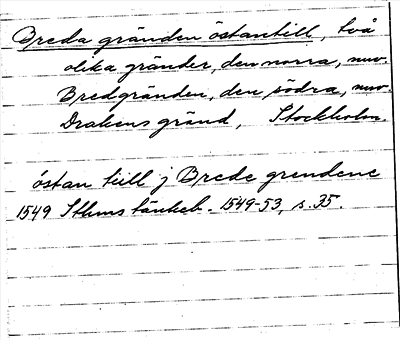 Breda gränden östantill, två
olika gränder, den norra, nuv.
Bredgränden, den södra, nuv.
Drakens gränd, Stockholm.
östan till j Brede grendene
1549 Sthms tänkeb. 1549-53, s. 35.